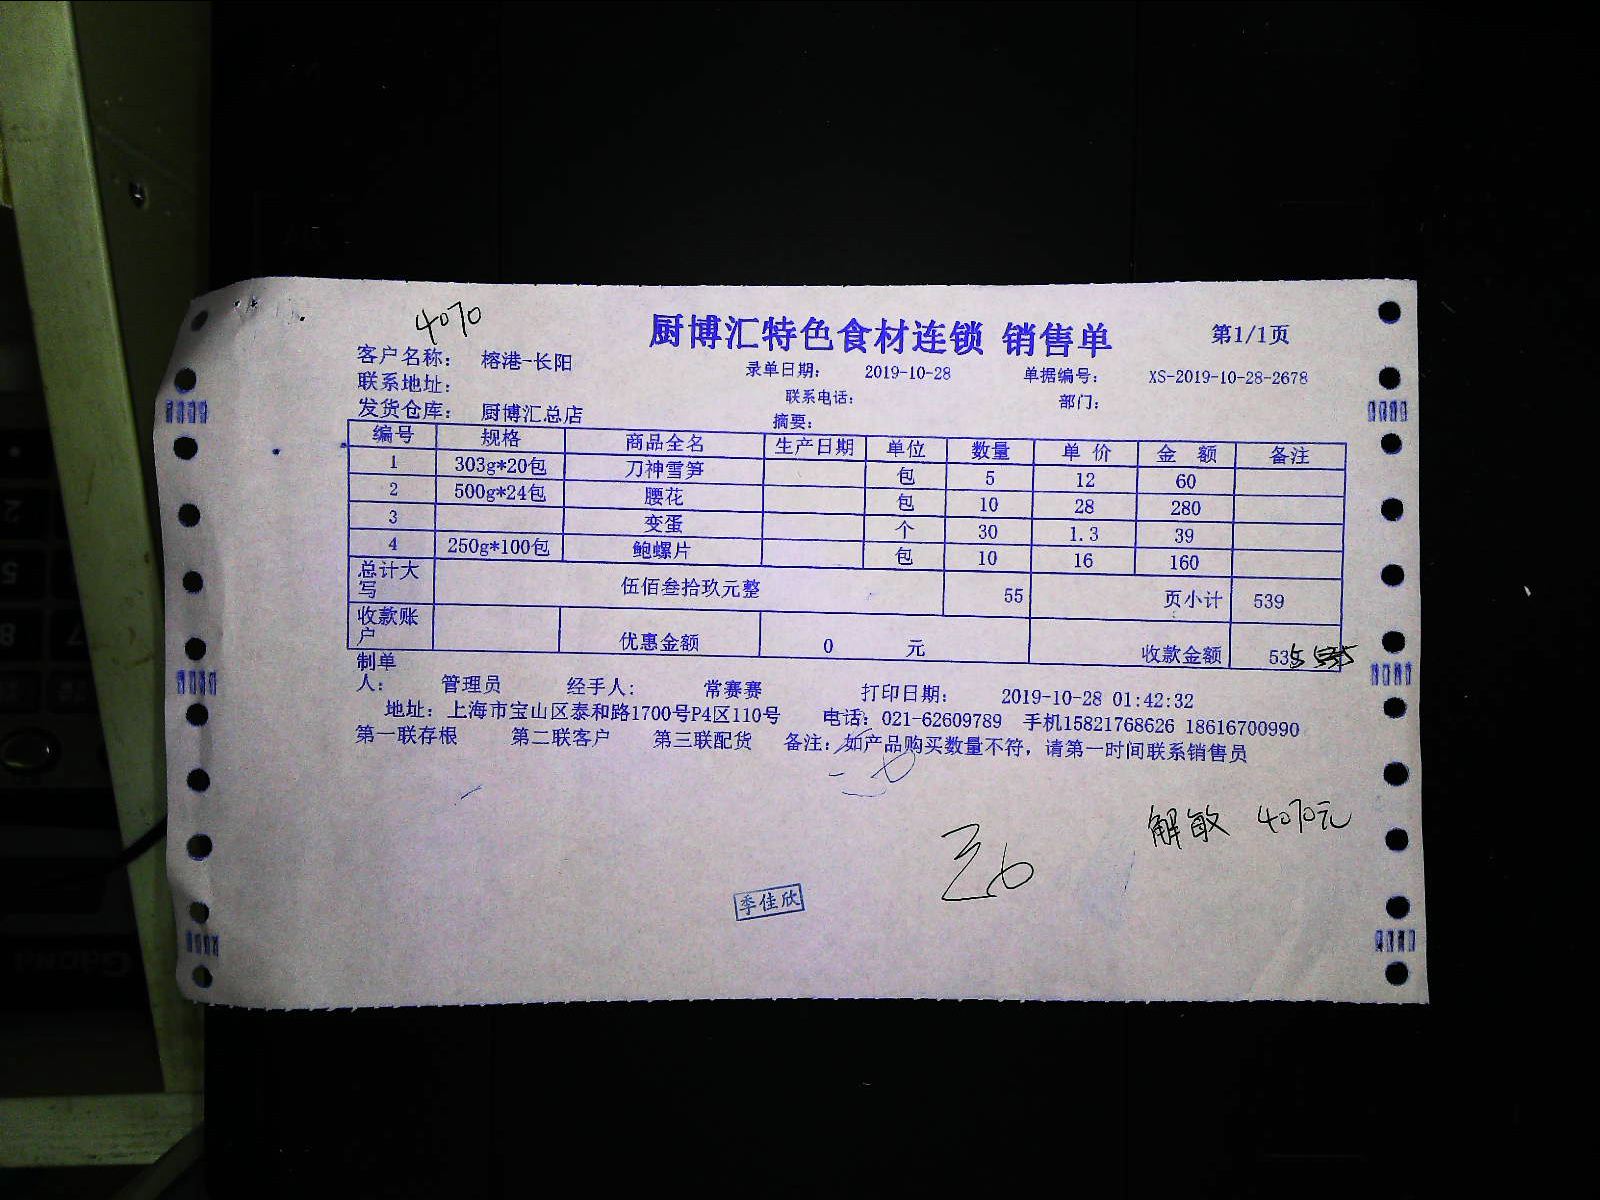 4070
厨博汇特色食材连锁 销售单
第1/1页
客户名称： 榕港-长阳
录单日期： 2019-10-28
单据编号： XS-2019-10-28-2678
联系地址：
联系电话：
部门：
发货仓库： 厨博汇总店
摘要：
编号 规格 商品全名 生产日期 单位 数量 单 价 金 额 备注
1 303g*20包 刀神雪笋 包 5 12 60
2 500g*24包 腰花 包 10 28 280
3 变蛋 个 30 1.3 39
4 250g*100包 鲍螺片 包 10 16 160
总计大写 伍佰叁拾玖元整 55 页小计 539
收款账户 优惠金额 0 元 收款金额 535
制单人： 管理员 经手人： 常赛赛 打印日期： 2019-10-28 01:42:32
地址：上海市宝山区泰和路1700号P4区110号 电话：021-62609789 手机15821768626 18616700990
第一联存根 第二联客户 第三联配货 备注：如产品购买数量不符，请第一时间联系销售员
解敏 4070元
季佳欣